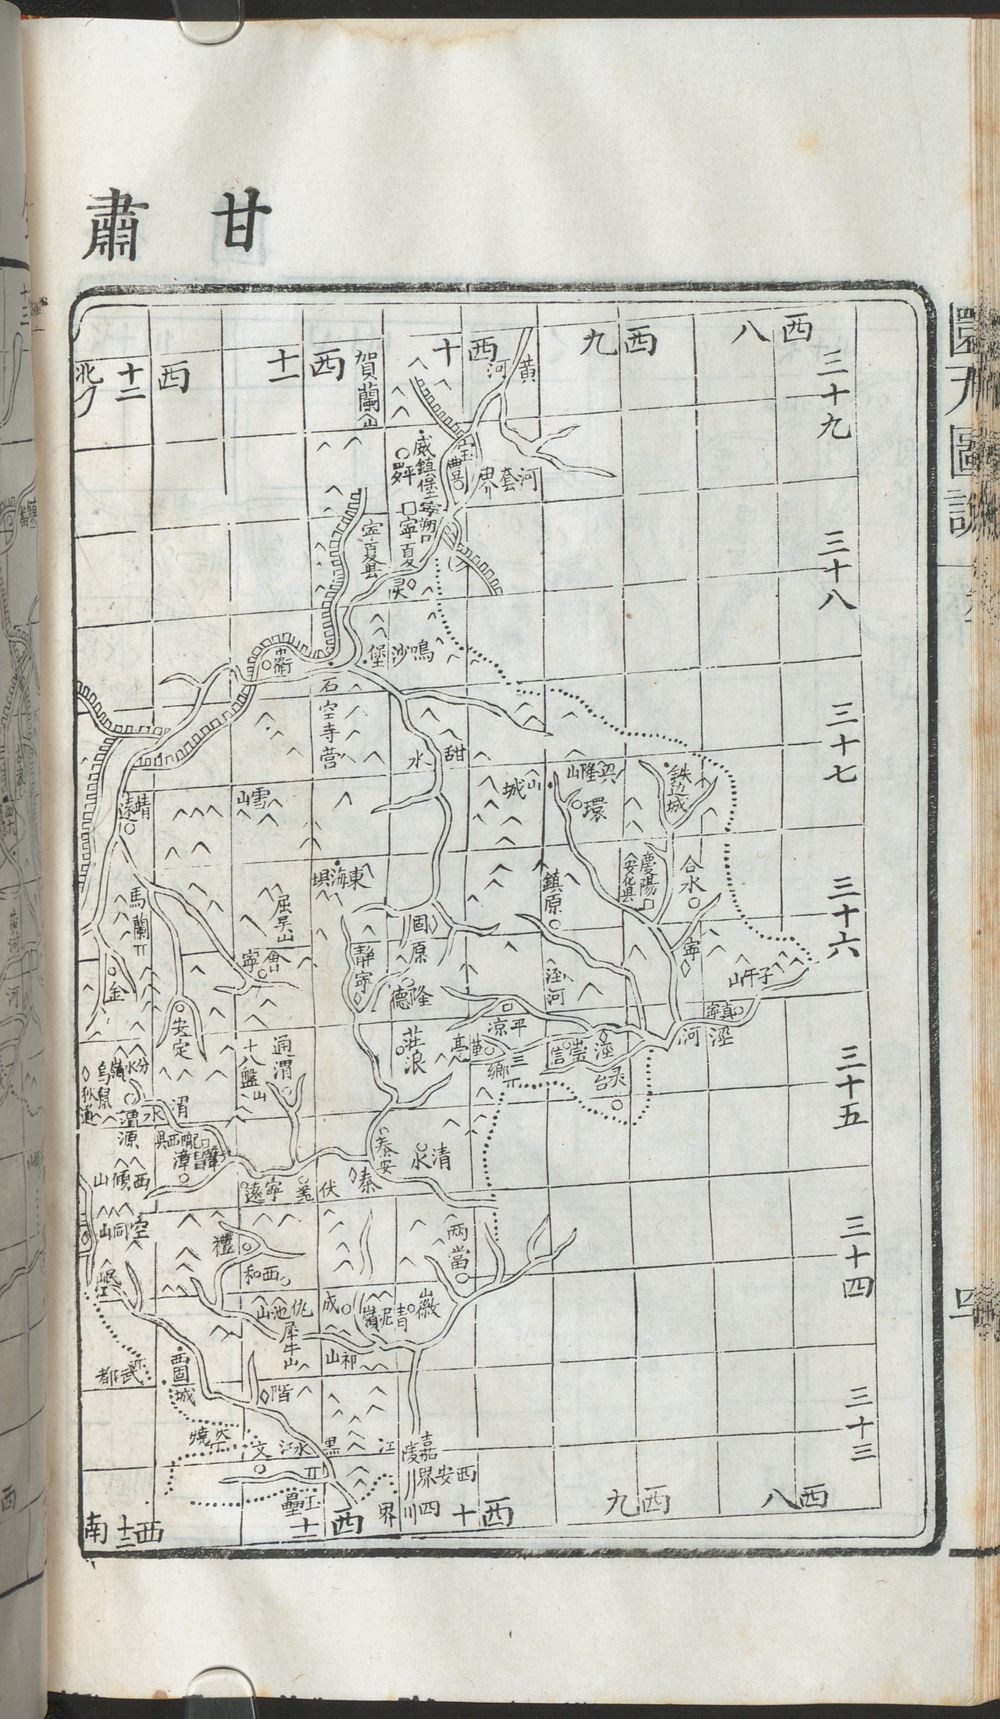 甘肅
西八
西九
西十
西十一
西十二
北
三十九
三十八
三十七
三十六
三十五
三十四
三十三
黃河
賀蘭山
威鎮堡
平羅
寶豐
河套界
寧夏
寧夏縣
灵
鳴沙堡
中衛
石空寺营
甜水
山城
環
鐵边城
靖遠
雪山
東海垻
屈吴山
鎮原
慶陽
安化縣
合水
馬蘭
固原
靜寧
隆德
會寧
寧
子午山
涇河
金
安定
平凉
華亭
崇信
涇
灵台
真寧
涇河
莊浪
通渭
十八盤山
分水嶺
鳥鼠
狄道
渭源
渭水
隴西縣
鞏昌
漳
西傾山
空同山
寧遠
伏羗
秦
秦安
清水
禮
西和
两當
徽
青泥嶺
成
仇池山
犀牛山
祁山
岷
西固城
武都
階
文
黑水江
柴燒
玉壘
嘉慶江
西安界
四川界
西八
西九
西十
西十一
西十二
南
圖說
四